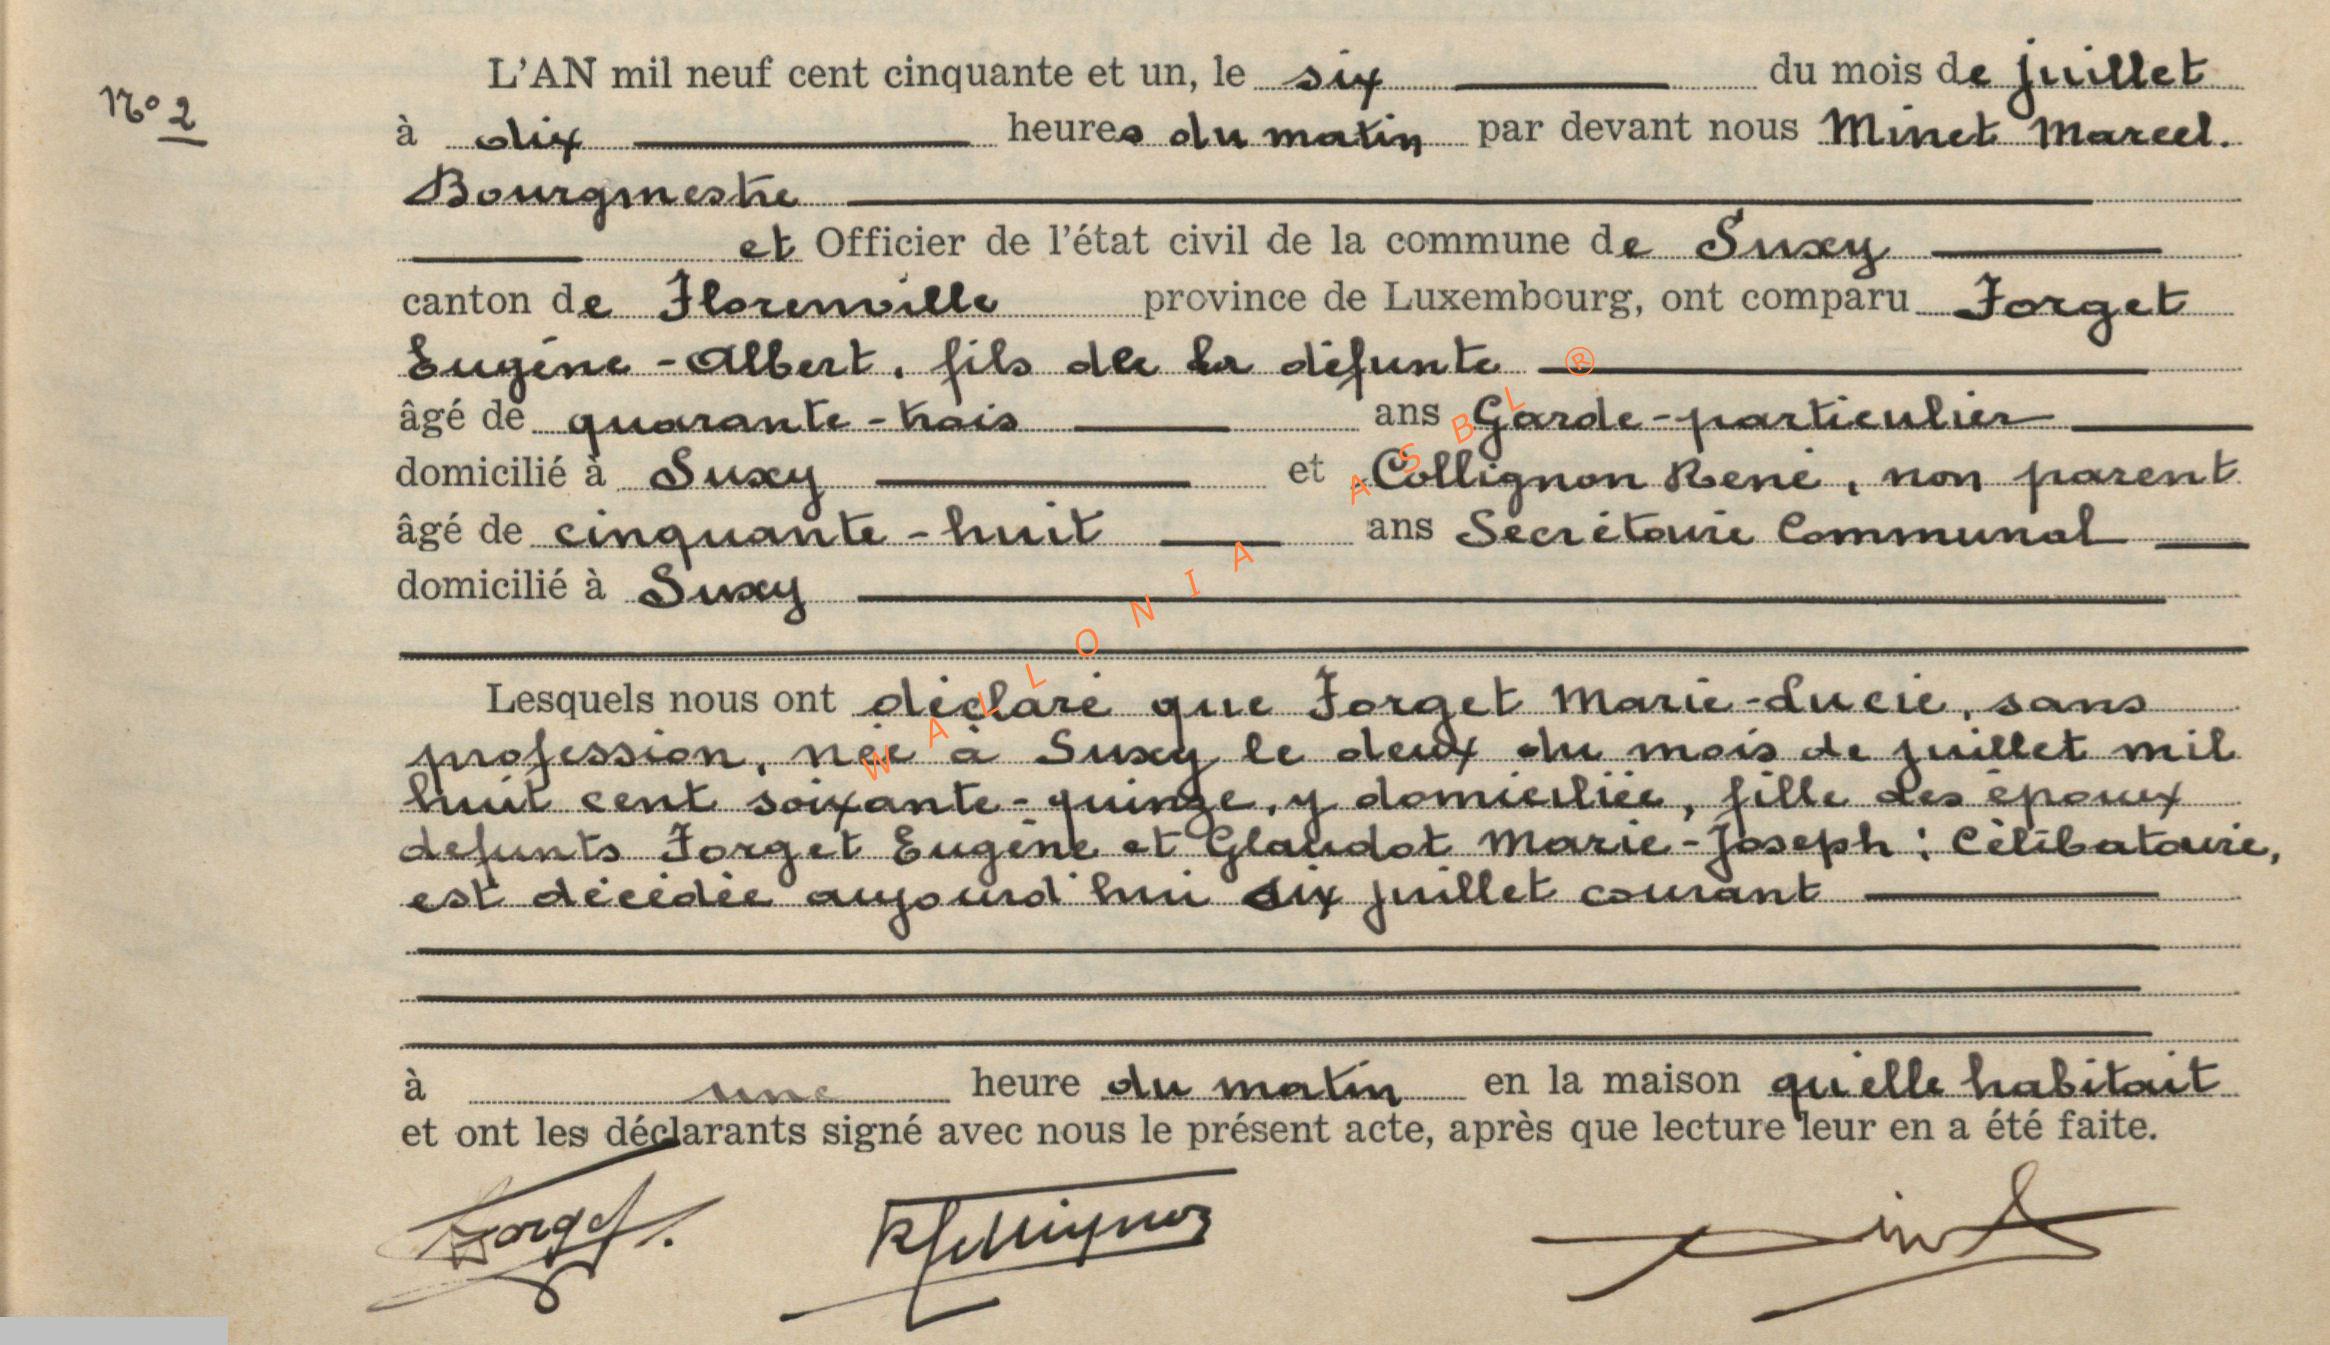 N° 2
L'AN mil neuf cent cinquante et un, le six du mois de juillet
à dix heures du matin par devant nous Minet Marcel.
Bourgmestre
et Officier de l'état civil de la commune de Suxy
canton de Florenville province de Luxembourg, ont comparu Forget
Eugène-Albert, fils de la défunte
âgé de quarante-trois ans Garde-particulier
domicilié à Suxy et Collignon René, non parent
âgé de cinquante-huit ans Secrétaire Communal
domicilié à Suxy
Lesquels nous ont déclaré que Forget Marie-Lucie, sans
profession, née à Suxy le deux du mois de juillet mil
huit cent soixante-quinze, y domiciliée, fille des époux
defunts Forget Eugène et Glaudot Marie-Joseph ; Célibataire,
est décédée aujourd'hui six juillet courant
à une heure du matin en la maison qu'elle habitait
et ont les déclarants signé avec nous le présent acte, après que lecture leur en a été faite.
Forget. RCollignon Minet
WALLONIA ASBL ®